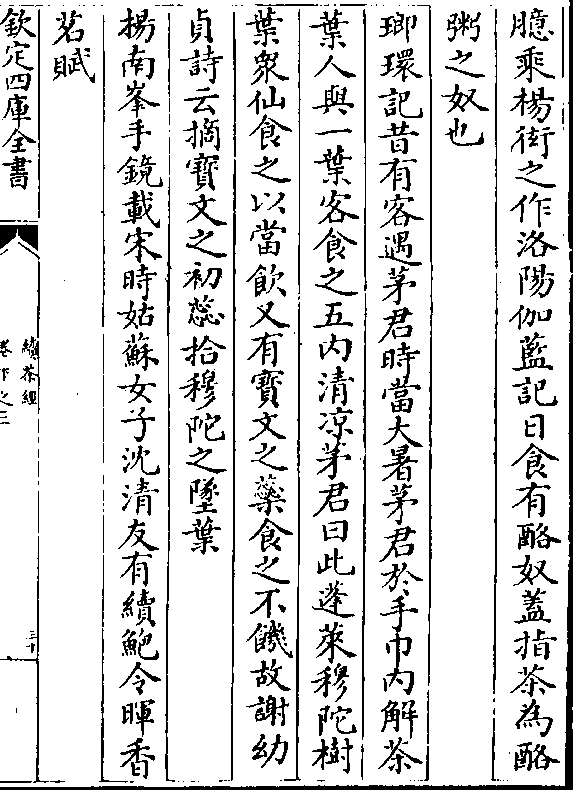 臆乘楊衒之作洛陽伽藍記曰食有酪奴蓋指茶為酪
粥之奴也
瑯環記昔有客遇茅君時當大暑茅君於手巾内解茶
葉人與一葉客食之五内清凉茅君曰此蓬萊穆陀樹
葉衆仙食之以當飲又有寳文之蘂食之不饑故謝幼
貞詩云摘寳文之初蕊拾穆陀之墜葉
揚南峯手鏡載宋時姑蘇女子沈清友有續鮑令暉香
茗賦
欽定四庫全書
續茶經
卷下之三
三十